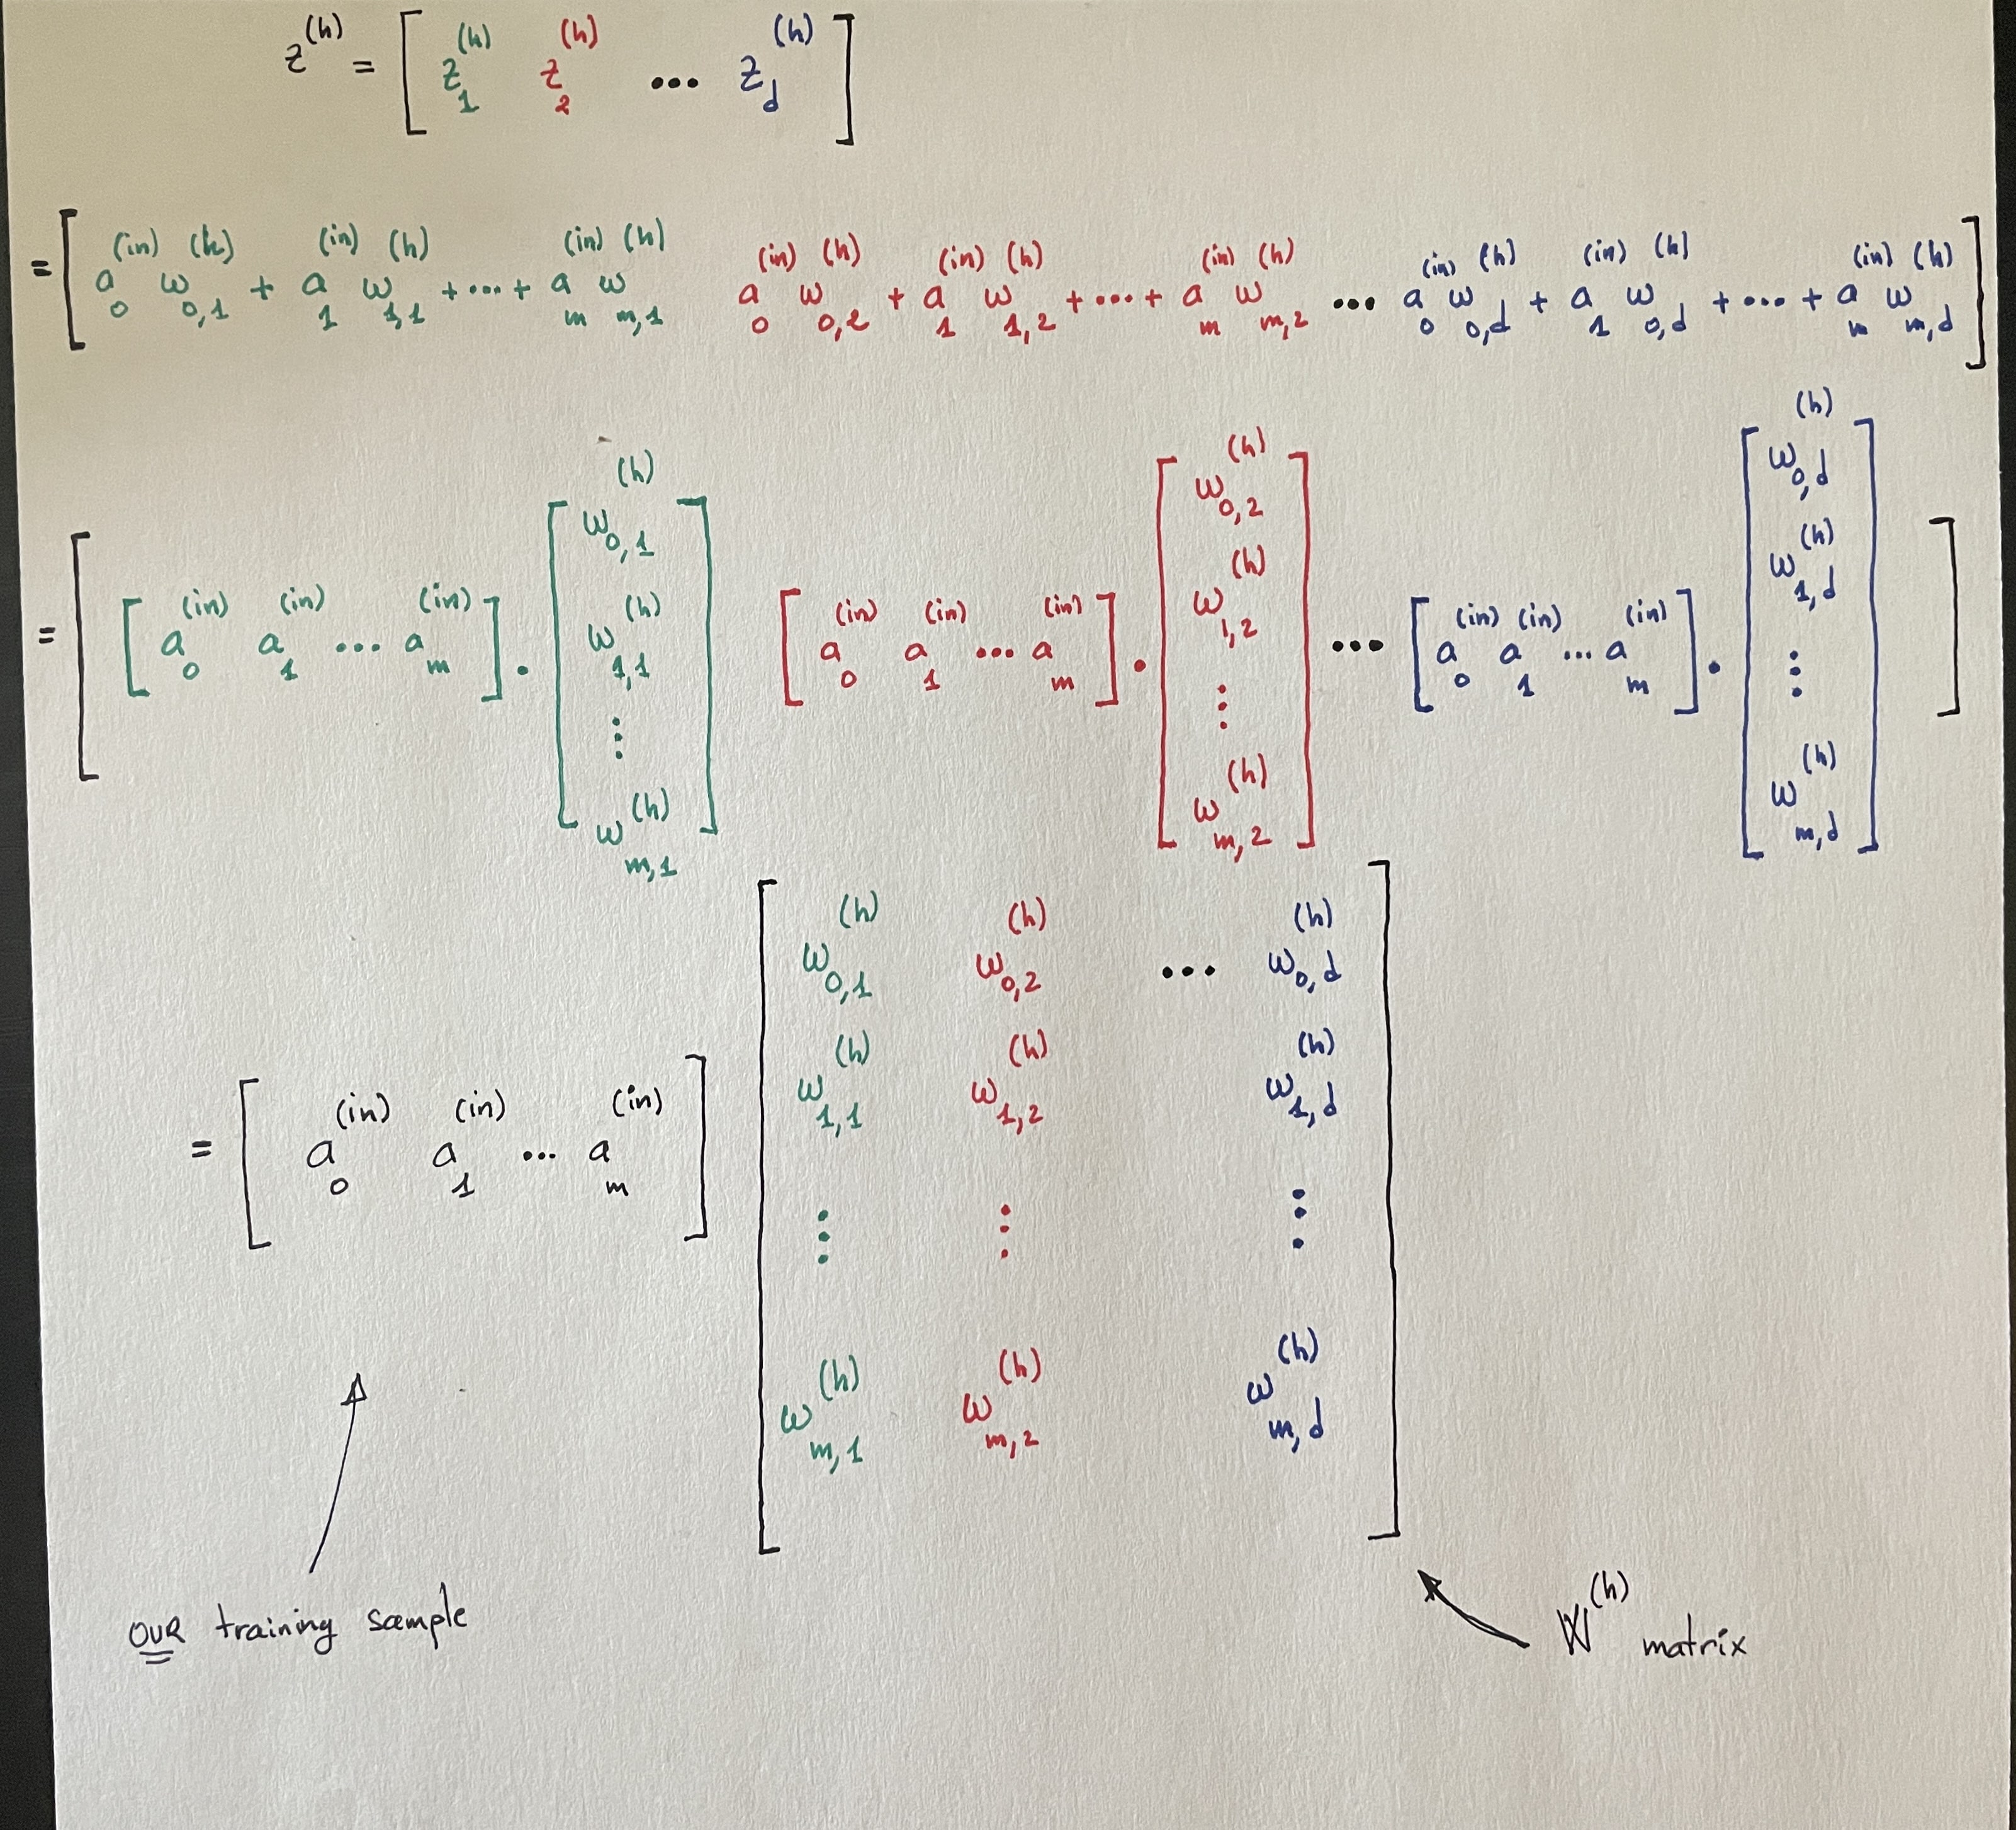 z^(h) = [ z_1^(h) z_2^(h) ... z_d^(h) ]
= [ a_0^(in) w_{0,1}^(h) + a_1^(in) w_{1,1}^(h) + ... + a_m^(in) w_{m,1}^(h)   a_0^(in) w_{0,2}^(h) + a_1^(in) w_{1,2}^(h) + ... + a_m^(in) w_{m,2}^(h) ... a_0^(in) w_{0,d}^(h) + a_1^(in) w_{0,d}^(h) + ... + a_m^(in) w_{m,d}^(h) ]
= [ [ a_0^(in) a_1^(in) ... a_m^(in) ] . [ w_{0,1}^(h) w_{1,1}^(h) ⋮ w_{m,1}^(h) ]   [ a_0^(in) a_1^(in) ... a_m^(in) ] . [ w_{0,2}^(h) w_{1,2}^(h) ⋮ w_{m,2}^(h) ] ... [ a_0^(in) a_1^(in) ... a_m^(in) ] . [ w_{0,d}^(h) w_{1,d}^(h) ⋮ w_{m,d}^(h) ] ]
= [ a_0^(in) a_1^(in) ... a_m^(in) ] [ w_{0,1}^(h) w_{0,2}^(h) ... w_{0,d}^(h)
w_{1,1}^(h) w_{1,2}^(h) w_{1,d}^(h)
⋮ ⋮ ⋮
w_{m,1}^(h) w_{m,2}^(h) w_{m,d}^(h) ]
OUR training sample
W^(h) matrix